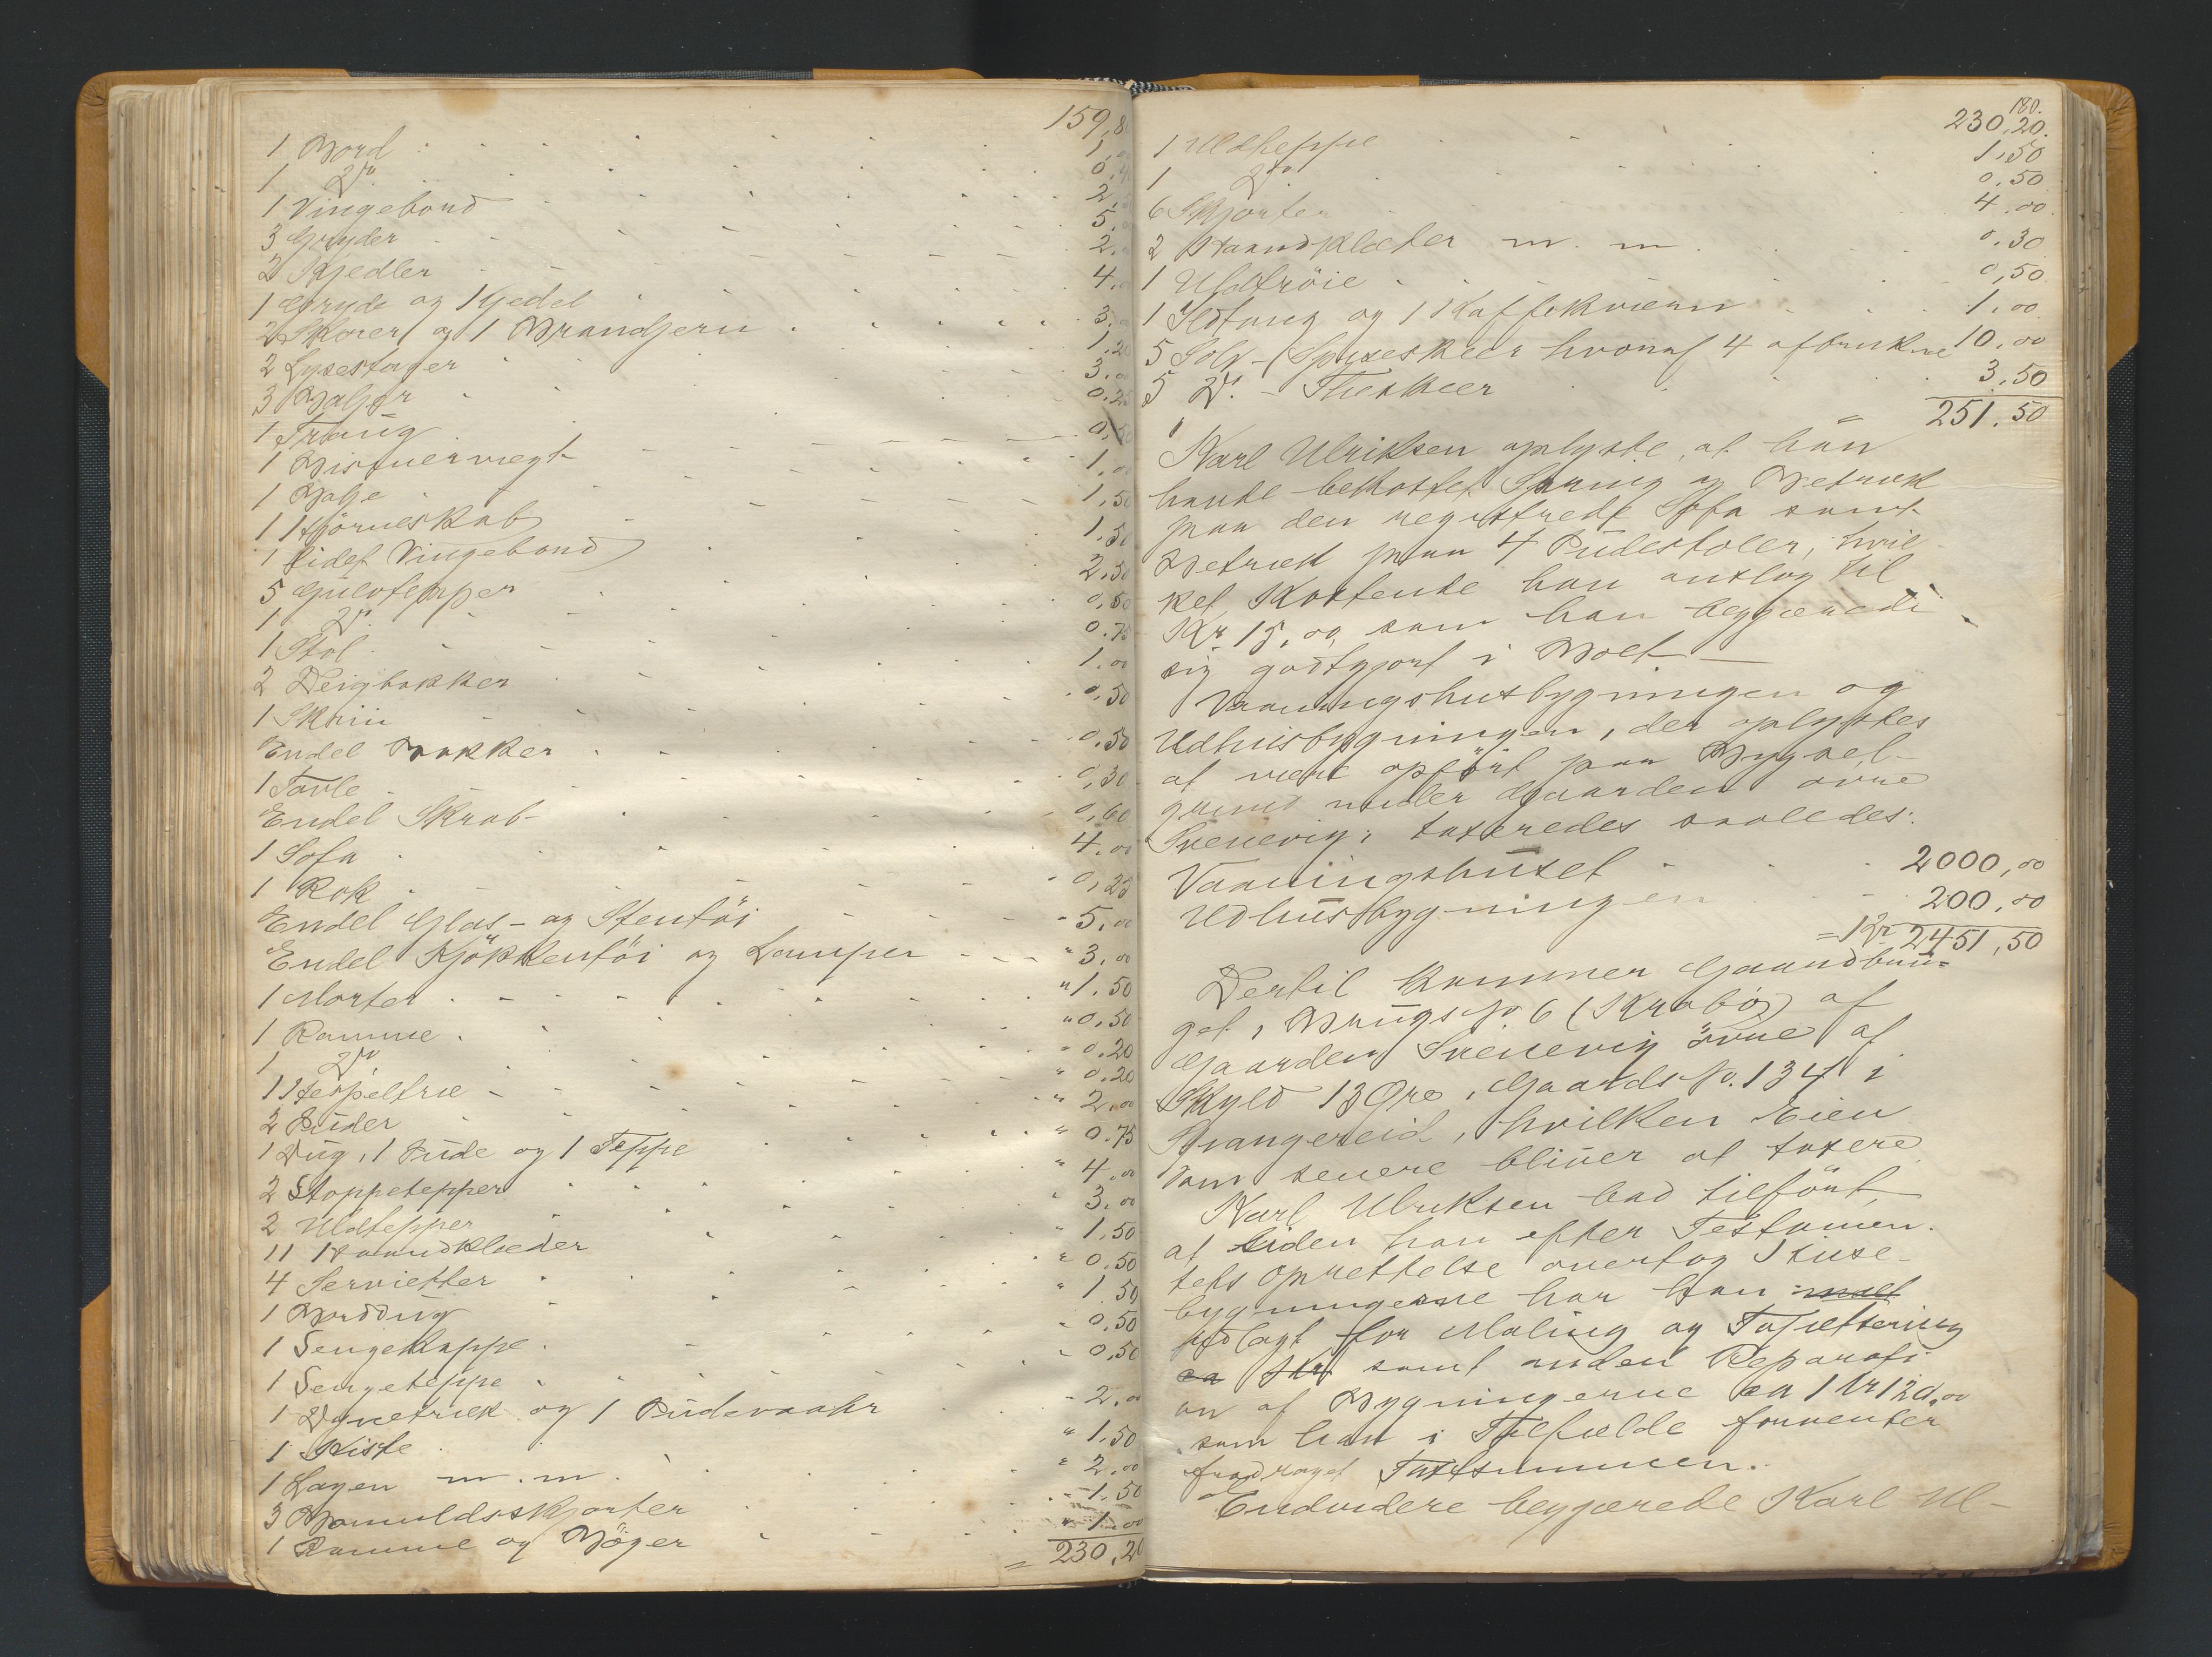 159,8
1 Bord 1,
1 Do 0,
1 Vingebord 2,
3 Gryder 5,
2 Kjedler 2.
1 Gryde og 1 Kjedel 4.
2 Skorer og 1 Brandjern 3.
2 Lysestager 1,20
3 Baljer 3.00
1 Traug 0.25
1 Bismervegt 0,50
1 Balje 1.00
1 Hjörneskab 1,50
1 lidet Vingebord 1.50
5 Gulvtepper 2.50
1 Do 0,50
1 Stol 0.75
2 Deigbakker 1.00
1 Skrin 0,50
Endel Bakker 0,50
1 Tavle 0,30
Endel Skrab 0,60
1 Sofa 4.00
1 Rok 0,25
Endel Glas- og Stentöi 5.00
Endel Kjökkentöi og Lamper " 3,00
1 Morter " 1.50
1 Ramme " 0,50
1 Do " 0.20
1 Hespeltræ " 0.20
2 Puder " 2.00
1 Dug, 1 Pude og 1 Teppe " 0.75
2 Stoppetepper " 4.00
2 Uldtepper " 3.00
11 Haandklæder " 1,50
4 Servietter " 0.50
1 Borddug " 1 50
1 Sengekappe " 0,50
1 Sengeteppe " 0,50
1 Dynetræk og 1 Pudevaahr " 2.00
1 Kiste " 1,50
1 Lagen m. m. " 2.00
3 Bomuldsskjorter " 1,50
1 Ramme og Böger " 1.00
= 230,20
180.
230,20.
1 Uldteppe 1,50
1 Do 0,50
6 Skjorter 4.00
2 Haandklæder m. m. 0.30
1 Uldtröie 0,50
1 Ildtang og 1 Kaffekværn 1.00
5 Sölv-Spiseskeer hvoraf 4 afbrukne 10.00
5 Do. - Theskeer 3,50
= 251.50
Karl Ulriksen oplyste, at han
havde bekostet Spring og Betræk
paa den registrerede Sofa samt
Betræk paa 4 Pudestoler, hvil-
ket Kostende han anslog til
Kr 15,00, som han begjærede
sig godtgjort i Boet. —
Vaaningshusbygningen og
Udhusbygningen, der oplystes
at være opfört paa Bygsel-
grund under Gaarden övre
Svenevig, taxeredes saaledes:
Vaaningshuset 2000,00
Udhusbygningen 200,00
= Kr 2451,50
Dertil kommer Gaardbru-
get, Brugs No. 6 (Krabö) af
Gaarden Svenevig övre af
Skyld 13 Øre, Gaards No. 134 i
Spangereid, hvilken Eien
dom senere bliver at taxere.
Karl Ulriksen bad tilfört,
at siden han efter Testamen-
tets Oprettelse overtog Huse-
bygningerne har han
udlagt for Maling og Tapetsering
ca samt anden Reparati-
on af Bygningerne ca Kr 120,00
som han i Tilfælde forventer
fradraget Taxtsummen.
Endvidere begjærede Karl Ul-